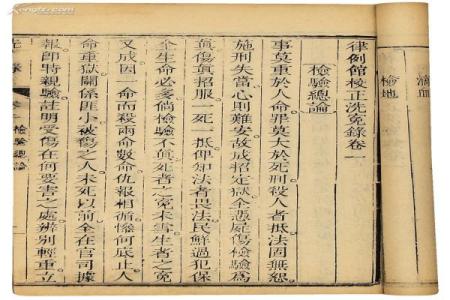 滴血
檢地
律例館校正洗冤錄卷一
檢驗總論
事莫重於人命罪莫大於死刑殺人者抵法固無恕
施刑失當心則難安故成招定獄全憑屍傷檢驗為
真傷真招服一死一抵俾知法者畏法民鮮過犯保
全生命必多倘檢驗不真死者之冤未雪生者之冤
又成因一命而殺兩命數命仇報相循慘何底止人
命重獄關係匪小被傷之人未死以前全在官司據
報即時親驗註明受傷在何要害之處辨別輕重立
檢驗總論